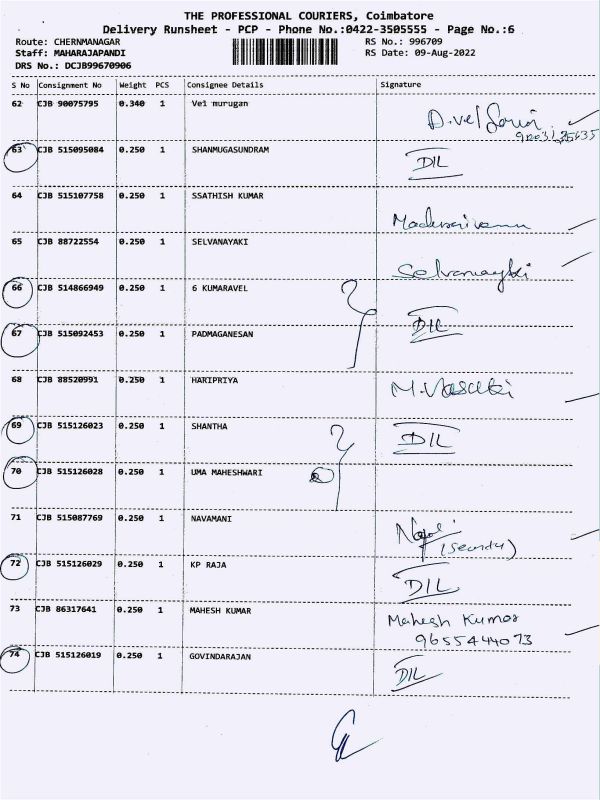 THE PROFESSIONAL COURIERS, Coimbatore
Delivery Runsheet - PCP - Phone No.:0422-3505555 - Page No.:6
Route: CHERNMANAGAR RS No.: 996709
Staff: MAHARAJAPANDI RS Date: 09-Aug-2022
DRS No.: DCJB99670906
S No Consignment No Weight PCS Consignee Details Signature
62 CJB 90075795 0.340 1 Vel murugan
63 CJB 515095084 0.250 1 SHANMUGASUNDRAM DIL
64 CJB 515107758 0.250 1 SSATHISH KUMAR
65 CJB 88722554 0.250 1 SELVANAYAKI Selvanayki
66 CJB 514866949 0.250 1 6 KUMARAVEL
67 CJB 515092453 0.250 1 PADMAGANESAN DIL
68 CJB 88520991 0.250 1 HARIPRIYA M. Vasuki
69 CJB 515126023 0.250 1 SHANTHA DIL
70 CJB 515126028 0.250 1 UMA MAHESHWARI
71 CJB 515087769 0.250 1 NAVAMANI
72 CJB 515126029 0.250 1 KP RAJA DIL
73 CJB 86317641 0.250 1 MAHESH KUMAR Mahesh Kumar
9655444073
74 CJB 515126019 0.250 1 GOVINDARAJAN DIL